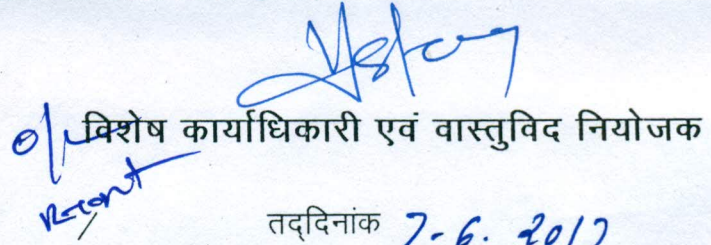 विशेष कार्याधिकारी एवं वास्तुविद नियोजक
तद्दिनांक 7-6. 2017